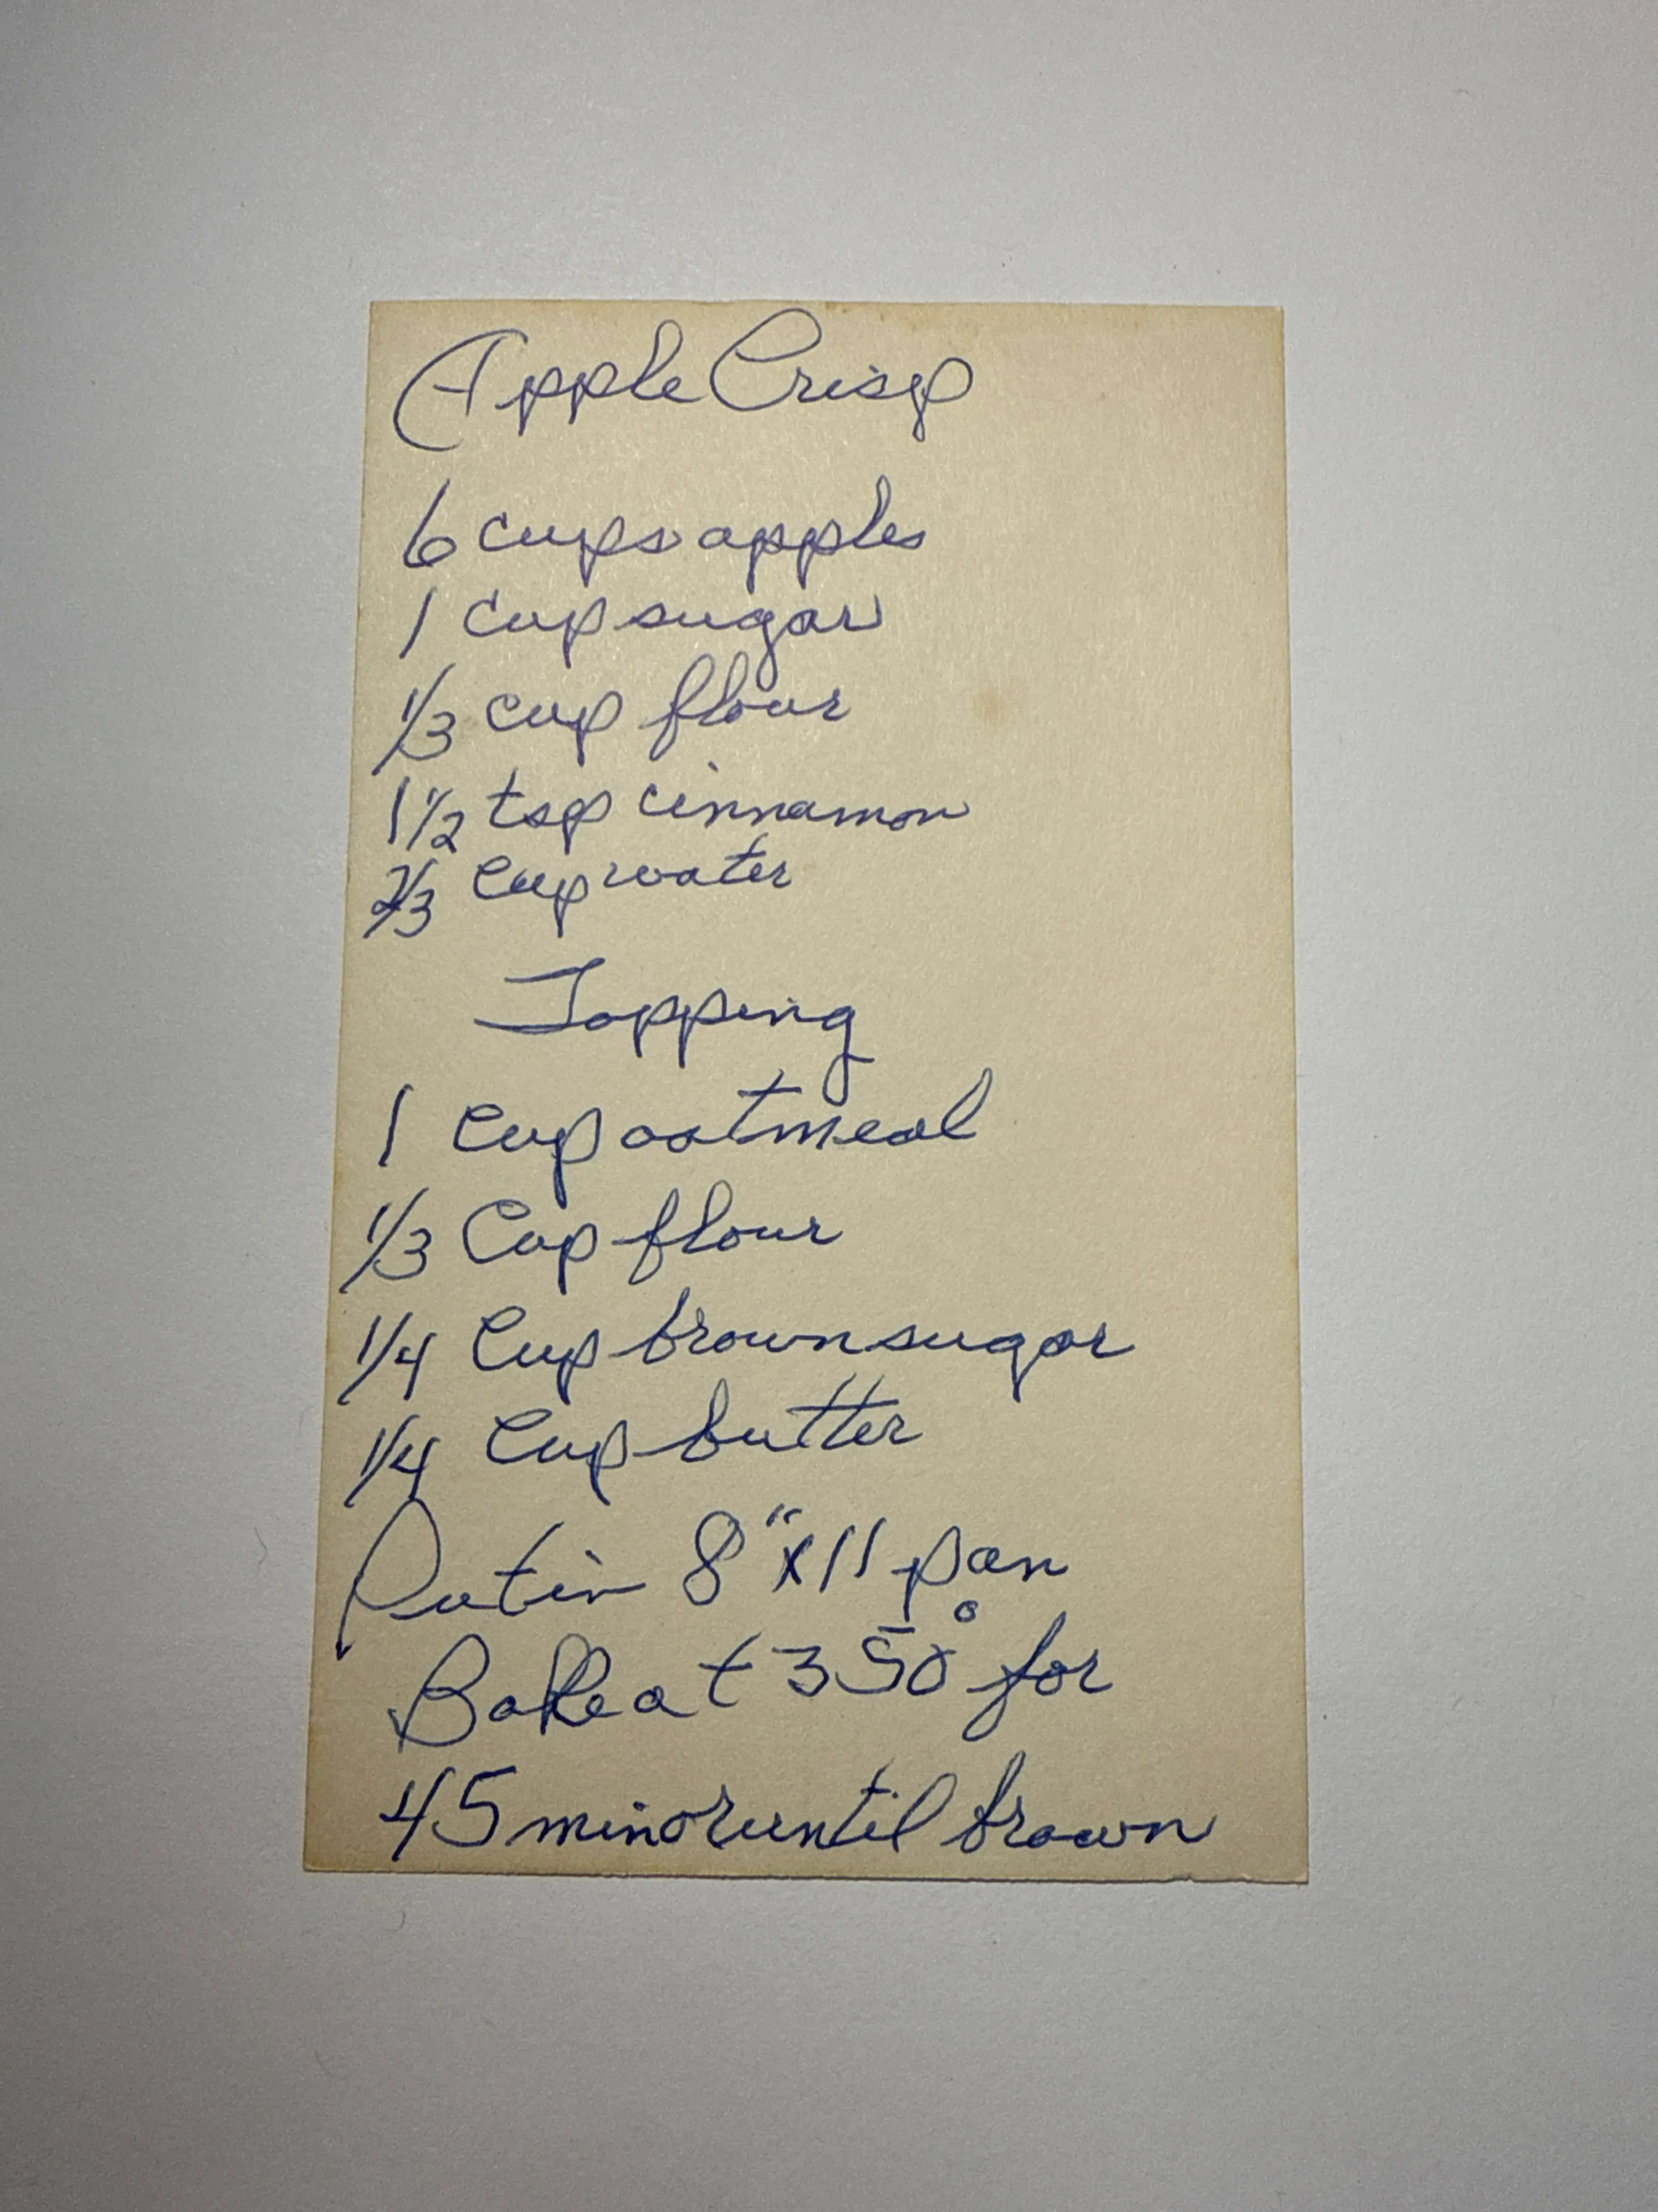 Apple Crisp
6 cups apples
1 cup sugar
1/3 cup flour
1 1/2 tsp cinnamon
2/3 cup water
Topping
1 cup oatmeal
1/3 cup flour
1/4 cup brown sugar
1/4 cup butter
Put in 8" x 11 pan
Bake at 350° for
45 min or until brown